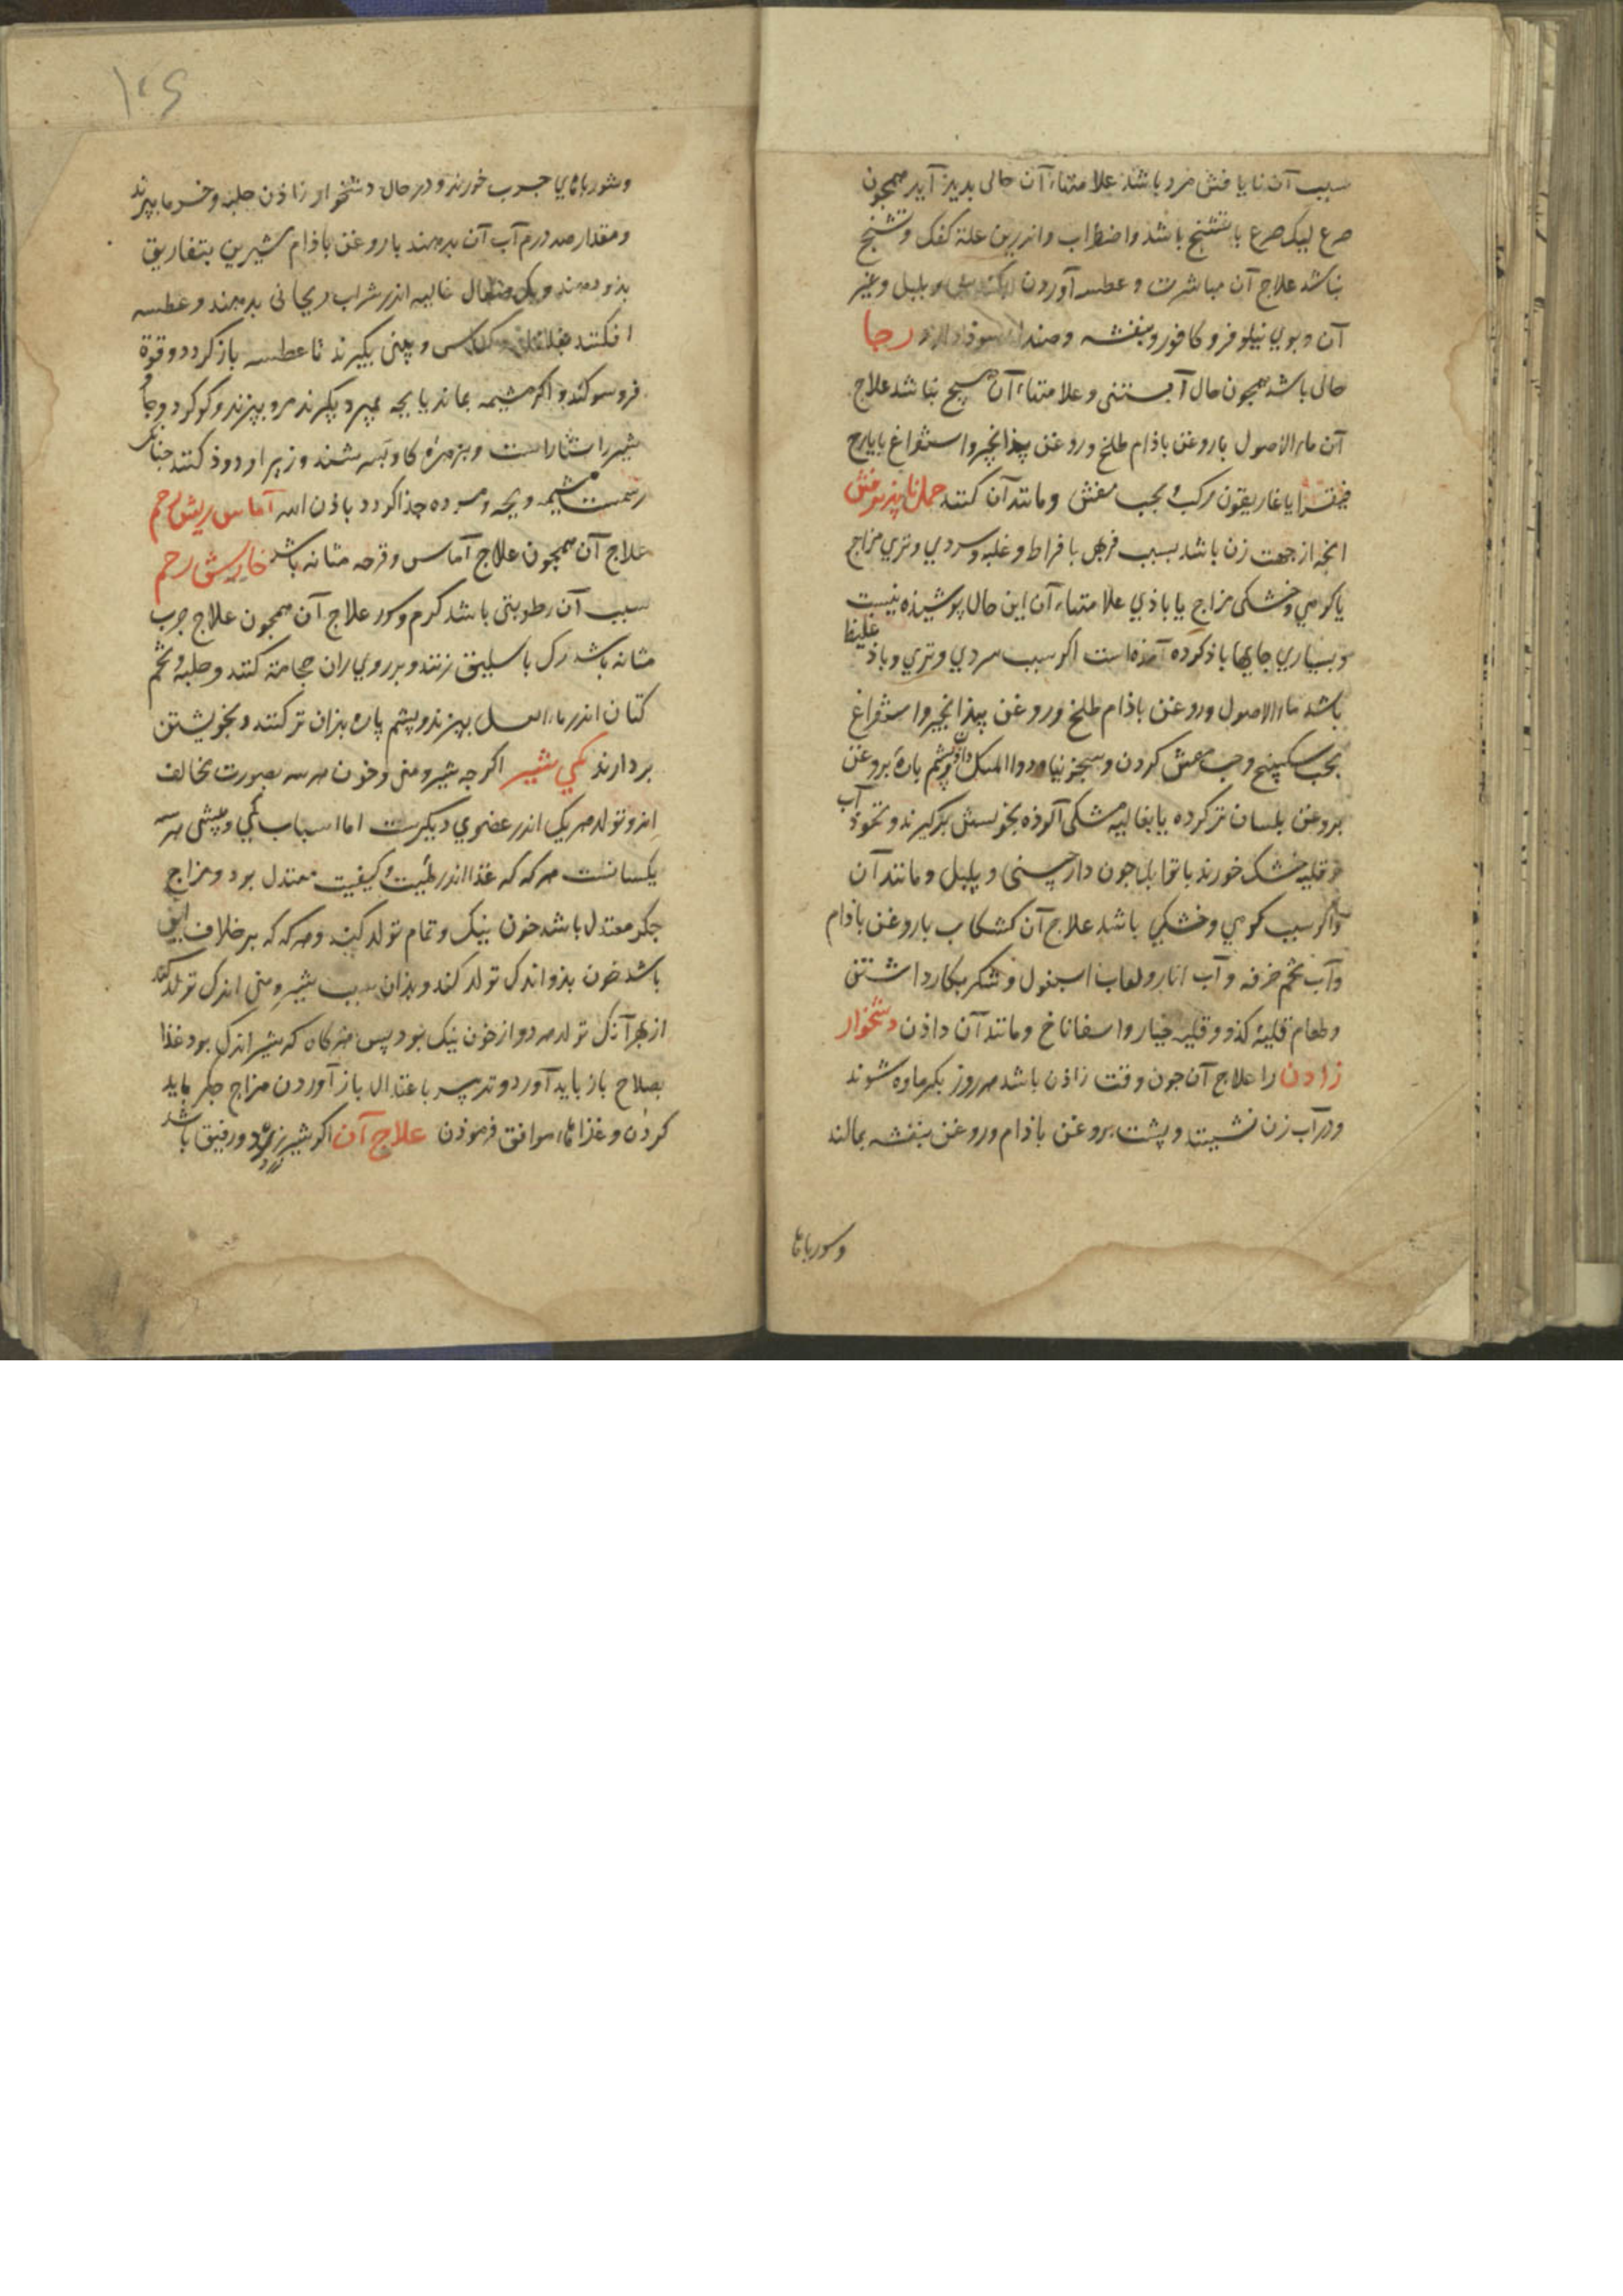 سبب آن نایافتن مرد باشد علامتهاء آن حالی بدید آید همچون
صرع لیک صرع باتشنج باشد واضطراب واندرین علة کفک وتشنج
نباشد علاج آن مباشرت وعطسه آوردن وبلبل وغیر
آن وبوی نیلوفر وکافور وبنفشه وصندل سوذ دارد رجا
حالی باشد همچون حال آبستنی وعلامتهاء آن هیچ نباشد علاج
آن ماء الاصول باروغن باذام طلخ وروغن بیذانجیر واستفراغ بایارج
فیقرا یا غاریقون مرکب وبحب منتن ومانند آن کنند حمل ناپذیرفتن
انچه ازجهت زن باشد بسبب فربهی بافراط وغلبه وسردی وتری مزاج
یا کرمی وخشکی مزاج یا باذی علامتهاء آن این حال پوشیذه نیست
وبسیاری جایها یاذ کرده آمذه است اکر سبب سردی وتری وباذ غلیظ
باشد ماء الاصول وروغن باذام طلخ وروغن بیذانجیر واستفراغ
بحب سکبینج وحب منتن کردن وسجزنیا ودواء المسک دادن وپشم پارهٔ بروغن
بروغن بلسان ترکرده یا بغالیه مشکی آلوذه بخویشتن برکیرند ونخوذ آب
وقلیه خشک خورند باتوابل جون دارچینی وپلپل ومانند آن
واکر سبب کرمی وخشکی باشد علاج آن کشکاب باروغن باذام
وآب تخم خرفه وآب انار ولعاب اسبغول وشکر بکار داشتن
وطعام قلیهٔ کذو وقلیه خیار واسفاناخ ومانند آن داذن دشخوار
زادن را علاج آن جون وقت زاذن باشد هر روز بکرماوه شوند
ودرآب زن نشیند وپشت بروغن باذام وروغن بنفشه بمالند
وشورباهاء
۱۰۶
وشورباهای چرب خورند ودر حال دشخوار زاذن حلبه وخرما بپزند
ومقدار صد درم آب آن بدهند باروغن باذام شیرین بتفاریق
بذو دهند ویک مثقال غالیه اندر شراب ریحانی بدهند وعطسه
افکنند وبینی بکیرند تا عطسه باز کردد وقوة
فروسو کند واکر مشیمه بماند یا بچه بمیرد بکیرند مر وبیرزد وکوکرد وجاو
شیر راستاراست وبزهرهٔ کاو بسرشند وزیر او دوذ کنند جنانک
رسمست مشیمه وبچه مرده جذا کردد باذن الله آماس ریش رحم
علاج آن همچون علاج آماس وقرحه مثانه باشد خارش رحم
سبب آن رطوبتی باشد کرم وشور علاج آن همچون علاج جرب
مثانه باشد رک باسلیق زنند وبرروی ران حجامة کنند وحلبه وتخم
کتان اندر ماء العسل بپزند وپشم پاره بذان تر کنند وبخویشتن
بردارند کمی شیر اکرچه شیر ومنی وخون هر سه بصورت مخالف
اند وتولد هریکی اندر عضوی دیکرست اما اسباب کمی وبیشی هر سه
یکسانست هرکه که غذا اندر کمیت وکیفیت معتدل بود ومزاج
جکر معتدل باشد خون نیک وتمام تولد کند وهرکه که برخلاف این
باشد خون بذ واندک تولد کند وبذان سبب شیر ومنی اندک تولد کند
ازبهر آنک تولد هردو ازخون نیک بود پس هرکاه که شیر اندک بود غذا
بصلاح باز باید آورد وتدبیر باعتدال باز آوردن مزاج جکر باید
کردن وغذاهاء موافق فرموذن علاج آن اکر شیر زرد ورقیق باشد